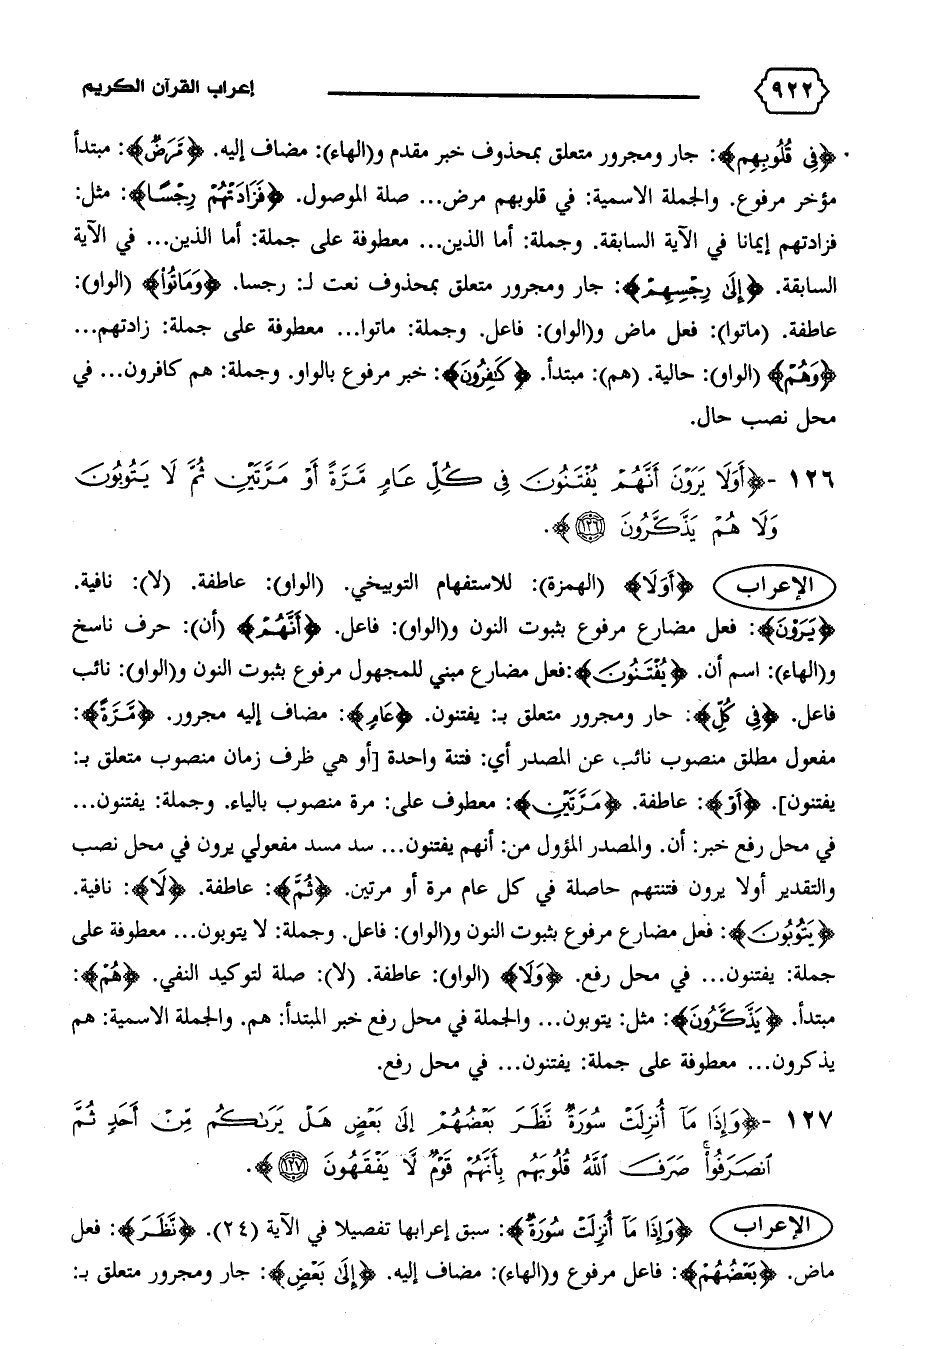 ٩٢٢ إعراب القرآن الكريم
﴿فِي قُلُوبِهِم﴾: جار ومجرور متعلق بمحذوف خبر مقدم و(الهاء): مضاف إليه. ﴿مَّرَضٌ﴾: مبتدأ
مؤخر مرفوع. والجملة الاسمية: في قلوبهم مرض... صلة الموصول. ﴿فَزَادَتْهُمْ رِجْسًا﴾: مثل:
فزادتهم إيمانا في الآية السابقة. وجملة: أما الذين... معطوفة على جملة: أما الذين... في الآية
السابقة. ﴿إِلَىٰ رِجْسِهِمْ﴾: جار ومجرور متعلق بمحذوف نعت لـ: رجسا. ﴿وَمَاتُوا۟﴾ (الواو):
عاطفة. (ماتوا): فعل ماض و(الواو): فاعل. وجملة: ماتوا... معطوفة على جملة: زادتهم...
﴿وَهُمْ﴾ (الواو): حالية. (هم): مبتدأ. ﴿كَٰفِرُونَ﴾: خبر مرفوع بالواو. وجملة: هم كافرون... في
محل نصب حال.
١٢٦ -﴿أَوَلَا يَرَوْنَ أَنَّهُمْ يُفْتَنُونَ فِي كُلِّ عَامٍ مَّرَّةً أَوْ مَرَّتَيْنِ ثُمَّ لَا يَتُوبُونَ
وَلَا هُمْ يَذَّكَّرُونَ ١٢٦﴾.
الإعراب ﴿أَوَلَا﴾ (الهمزة): للاستفهام التوبيخي. (الواو): عاطفة. (لا): نافية.
﴿يَرَوْنَ﴾: فعل مضارع مرفوع بثبوت النون و(الواو): فاعل. ﴿أَنَّهُمْ﴾ (أن): حرف ناسخ
و(الهاء): اسم أن. ﴿يُفْتَنُونَ﴾:فعل مضارع مبني للمجهول مرفوع بثبوت النون و(الواو): نائب
فاعل. ﴿فِي كُلِّ﴾: حار ومجرور متعلق بـ: يفتنون. ﴿عَامٍ﴾: مضاف إليه مجرور. ﴿مَّرَّةً﴾:
مفعول مطلق منصوب نائب عن المصدر أي: فتنة واحدة [أو هي ظرف زمان منصوب متعلق بـ:
يفتنون]. ﴿أَوْ﴾: عاطفة. ﴿مَرَّتَيْنِ﴾: معطوف على: مرة منصوب بالياء. وجملة: يفتنون...
في محل رفع خبر: أن. والمصدر المؤول من: أنهم يفتنون... سد مسد مفعولي يرون في محل نصب
والتقدير أولا يرون فتنتهم حاصلة في كل عام مرة أو مرتين. ﴿ثُمَّ﴾: عاطفة. ﴿لَا﴾: نافية.
﴿يَتُوبُونَ﴾: فعل مضارع مرفوع بثبوت النون و(الواو): فاعل. وجملة: لا يتوبون... معطوفة على
جملة: يفتنون... في محل رفع. ﴿وَلَا﴾ (الواو): عاطفة. (لا): صلة لتوكيد النفي. ﴿هُمْ﴾:
مبتدأ. ﴿يَذَّكَّرُونَ﴾: مثل: يتوبون... والجملة في محل رفع خبر المبتدأ: هم. والجملة الاسمية: هم
يذكرون... معطوفة على جملة: يفتنون... في محل رفع.
١٢٧ -﴿وَإِذَا مَآ أُنزِلَتْ سُورَةٌ نَّظَرَ بَعْضُهُمْ إِلَىٰ بَعْضٍ هَلْ يَرَىٰكُم مِّنْ أَحَدٍ ثُمَّ
ٱنصَرَفُوا۟ۚ صَرَفَ ٱللَّهُ قُلُوبَهُم بِأَنَّهُمْ قَوْمٌ لَّا يَفْقَهُونَ ١٢٧﴾.
الإعراب ﴿وَإِذَا مَآ أُنزِلَتْ سُورَةٌ﴾: سبق إعرابها تفصيلا في الآية (٢٤). ﴿نَّظَرَ﴾: فعل
ماض. ﴿بَعْضُهُمْ﴾: فاعل مرفوع و(الهاء): مضاف إليه. ﴿إِلَىٰ بَعْضٍ﴾: جار ومجرور متعلق بـ: